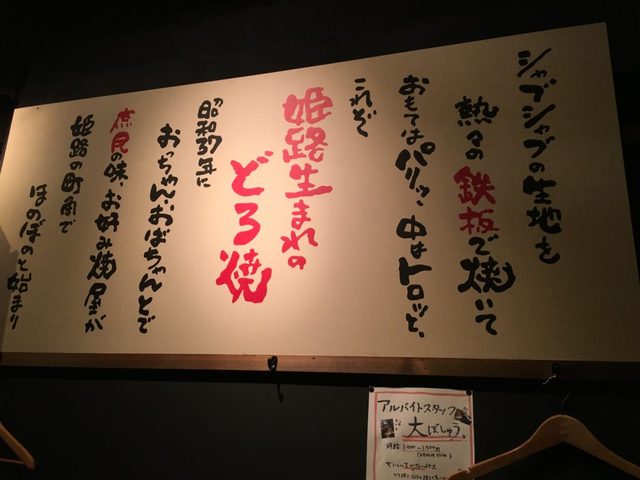 シャブシャブの生地を
熱々の鉄板で焼いて
おもてはパリッ、中はトロッと、
これぞ
姫路生まれの
どろ焼
昭和37年に
おっちゃん、おばちゃんとで
庶民の味、お好み焼屋が
姫路の町角で
ほのぼのと始まり
アルバイトスタッフ
大ぼしゅう。